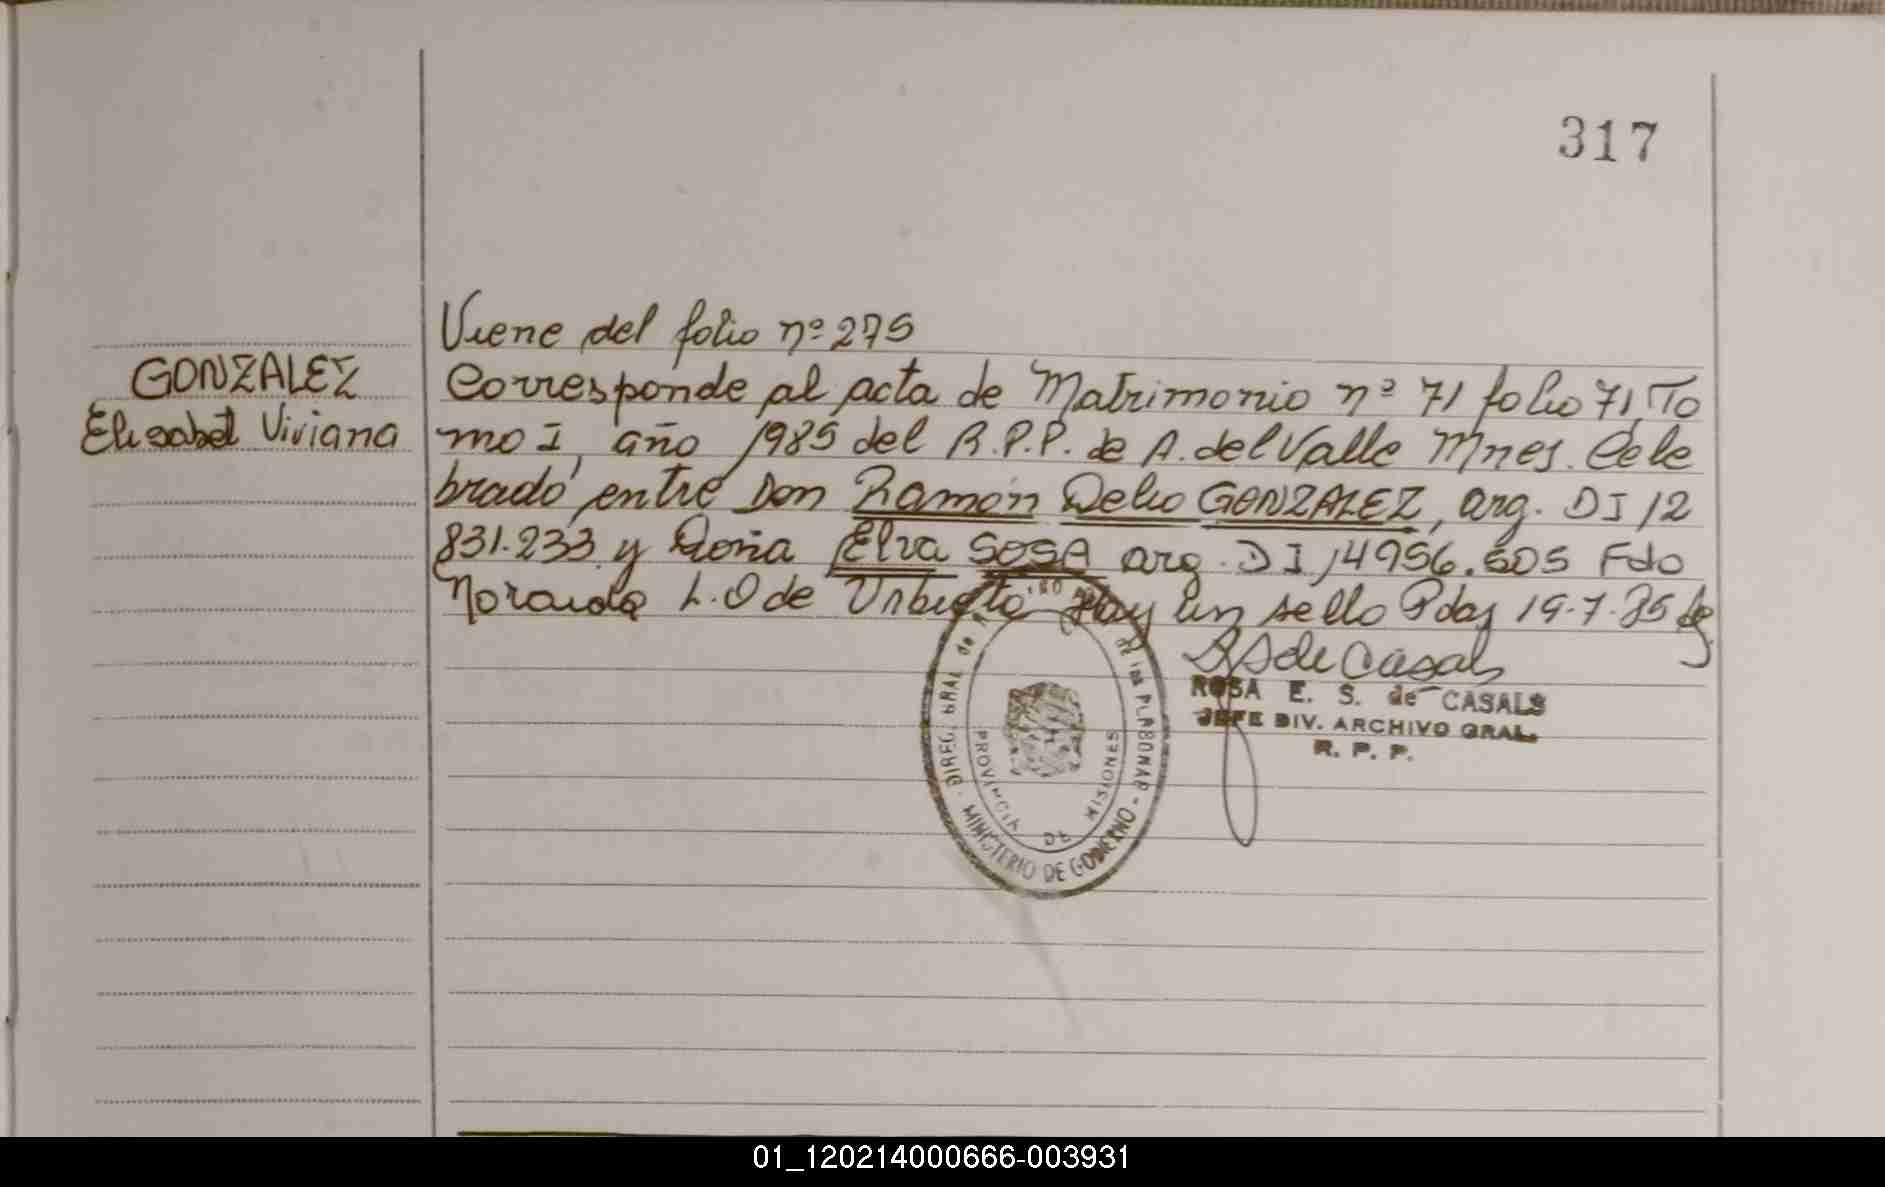 317
Viene del folio nº 275
GONZALEZ
Elisabet Viviana
Corresponde al acta de Matrimonio nº 71 folio 71, To
mo I, año 1985 del R.P.P. de A. del Valle Mnes. Cele
brado entre Don Ramón Delio GONZALEZ, arg. DI 12
831.233 y Doña Elva SOSA arg. DI 14956.505 Fdo
L. O de Hay un sello Pdas 19-7-85
S de Casals
ROSA E. S. de CASALS
JEFE DIV. ARCHIVO GRAL.
R. P. P.
DIREC. GRAL de de las PERSONAS
PROVINCIA DE MISIONES
MINISTERIO DE GOBIERNO
01_120214000666-003931